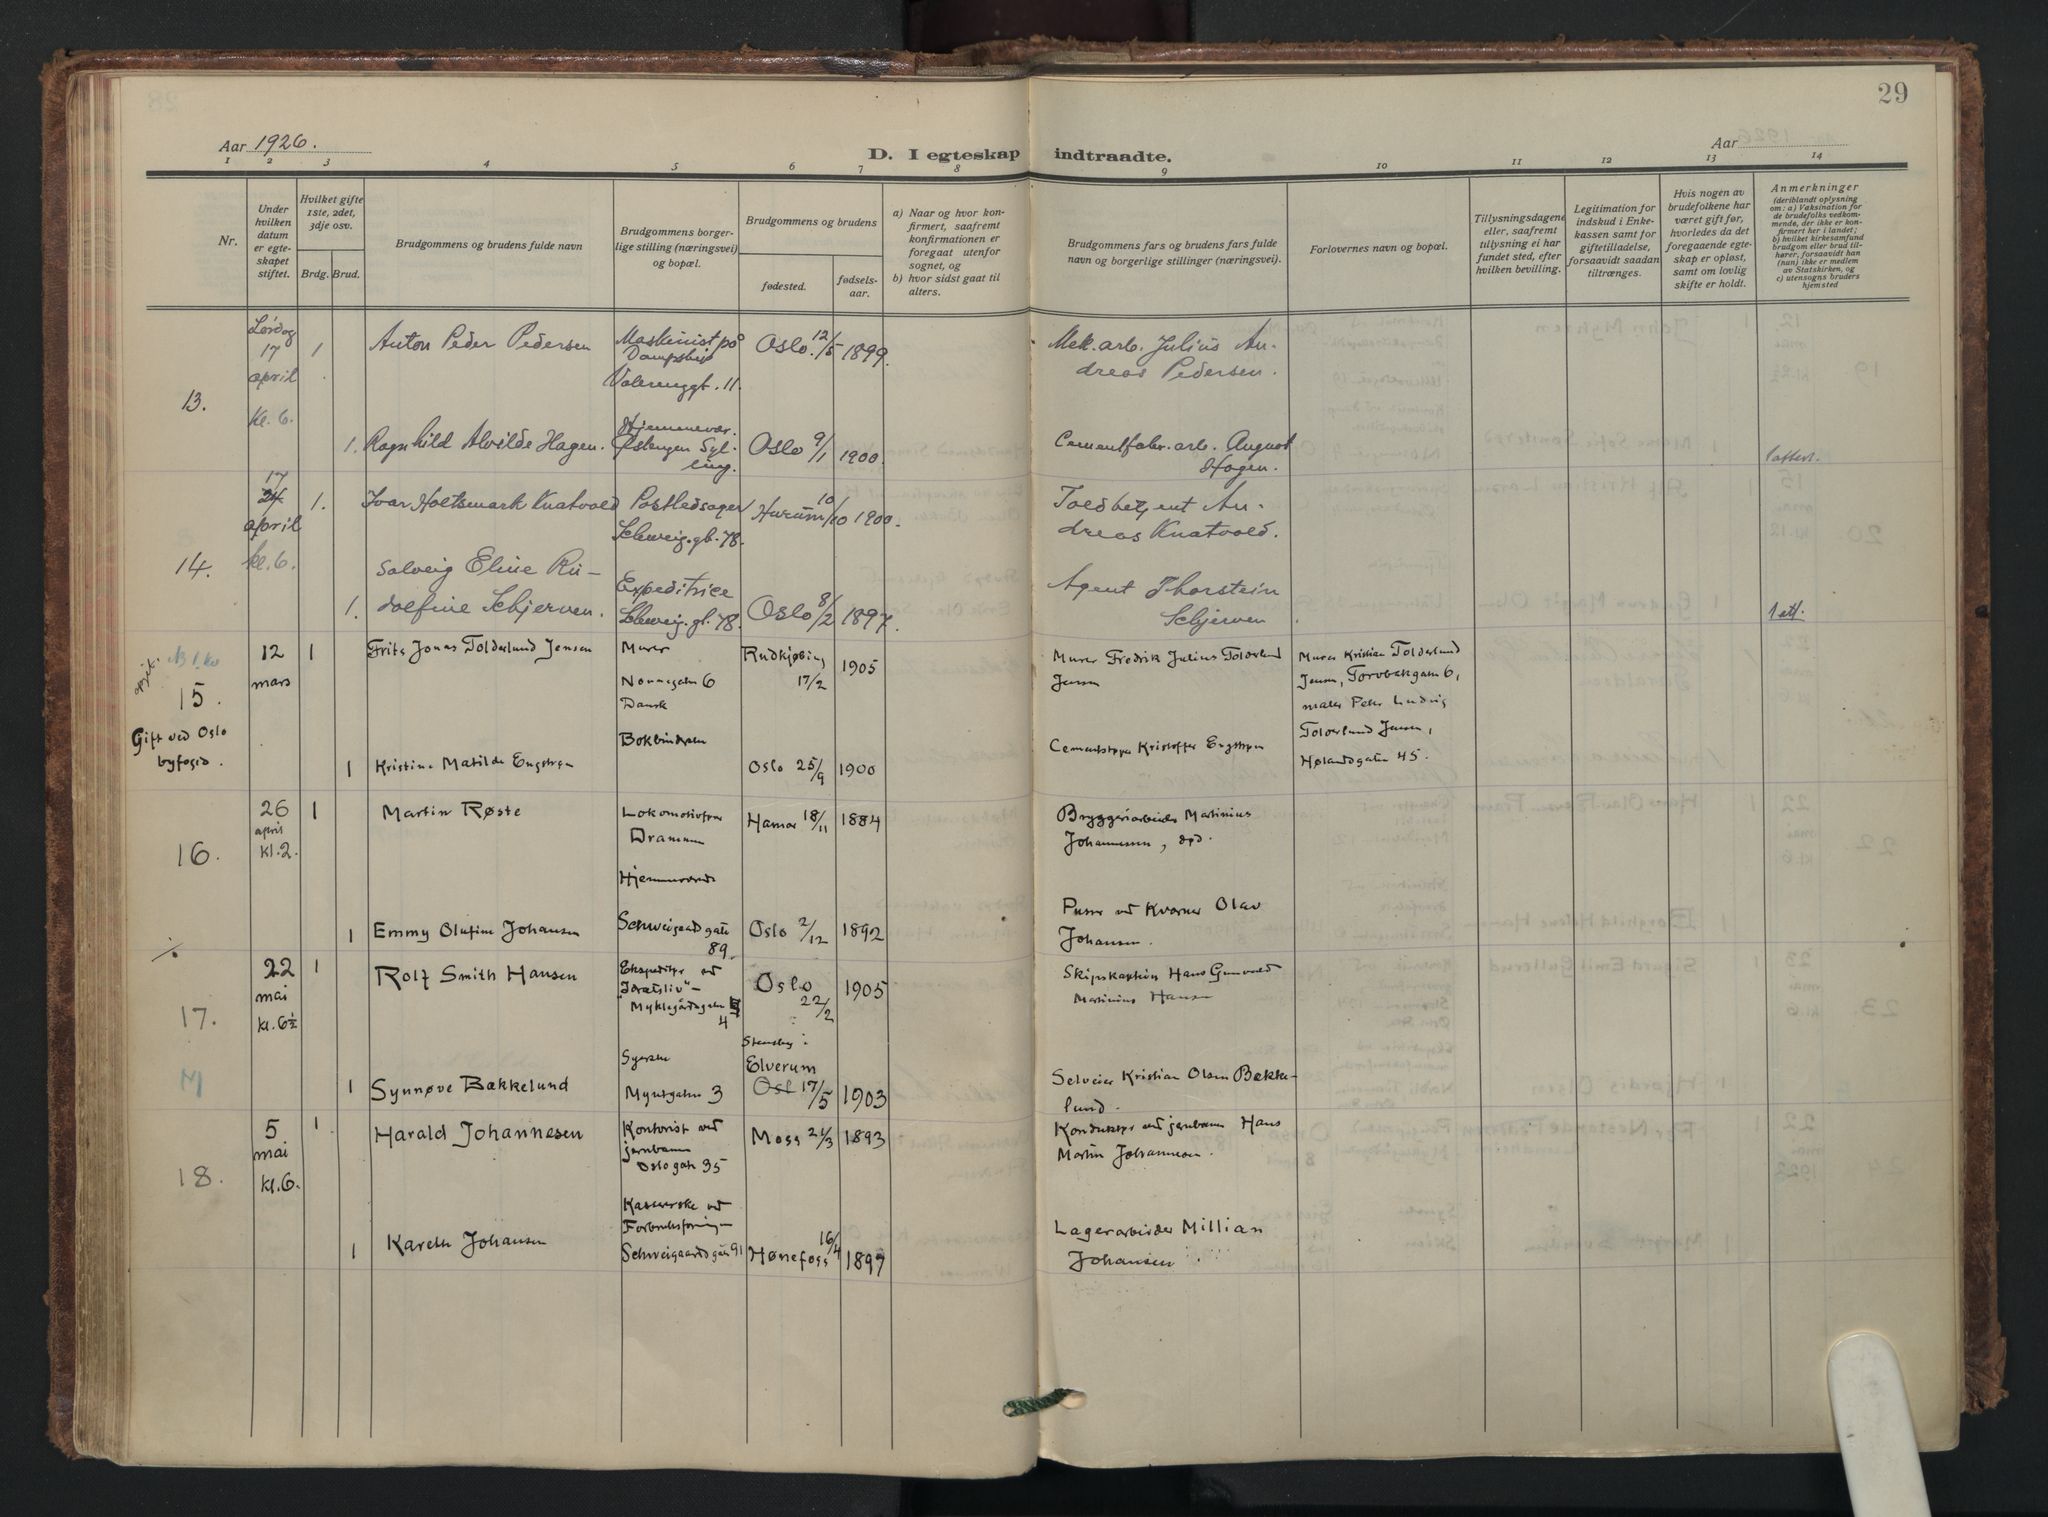 29
Aar 1926.
D. I egteskap indtraadte.
Aar
1 2 3 4 5 6 7 8 9 10 11 12 13 14
Nr.
Under hvilken datum er egteskapet stiftet.
Hvilket gifte 1ste, 2det, 3dje osv.
Brdg. Brud.
Brudgommens og brudens fulde navn
Brudgommens borgerlige stilling (næringsvei) og bopæl.
Brudgommens og brudens
fødested.
fødselsaar.
a) Naar og hvor konfirmert, saafremt konfirmationen er foregaat utenfor sognet, og
b) hvor sidst gaat til alters.
Brudgommens fars og brudens fars fulde navn og borgerlige stillinger (næringsvei).
Forlovernes navn og bopæl.
Tillysningsdagene eller, saafremt tillysning ei har fundet sted, efter hvilken bevilling.
Legitimation for indskud i Enkekassen samt for giftetilladelse, forsaavidt saadan tiltrænges.
Hvis nogen av brudefolkene har været gift før, hvorledes da det foregaaende egteskap er opløst, samt om lovlig skifte er holdt.
Anmerkninger
(deriblandt oplysning om: a) Vaksination for de brudefolks vedkommende, der ikke er konfirmert her i landet; b) hvilket kirkesamfund brudgom eller brud tilhører, forsaavidt han (hun) ikke er medlem av Statskirken, og c) utensogns bruders hjemsted
13.
Lørdag
17
april
Kl. 6.
1
Anton Peder Pedersen
Maskinist på
Dampskip
Valerenggt. 11.
Oslo 12/5 1899.
Mek. arb. Julius An-
dreas Pedersen.
1. Ragnhild Alvilde Hagen.
Hjemmevær.
Østengen Syl-
ling.
Oslo 9/1 1900.
Cementfabr. arb. August
Hagen.
1 attest.
14.
17
24
april
kl. 6.
1.
Ivar Holtsmark Knatvold
Postledsager
Schweig. gt. 78.
Hurum 10/10 1900.
Toldbetjent An-
dreas Knatvold.
1.
Solveig Eline Ru-
dolfine Schjerven.
Expeditrice
Schweig. gt. 78.
Oslo 8/2 1897.
Agent Thorstein
Schjerven
1 att.
15.
Gift ved Oslo
byfoged.
12
mars
1
Frits Jonas Tolderlund Jensen
Murer
Nonnegaten 6
Dansk
Rudkjøbing
17/2
1905
Murer Fredrik Julius Tolderlund
Jensen
Murer Kristian Tolderlund
Jensen, Torvbakgaten 6,
maler Peter Ludvig
Tolderlund Jensen,
Hølandsgaten 45.
1 Kristine Matilde Engstrøm
Bokbinderske
Oslo 25/9 1900
Cementstøper Kristoffer Engstrøm
16.
26
april
kl. 2.
1
Martin Røste
Lokomotivfyrer
Drammen
Hamar 18/11 1884
Bryggeriarbeider Martinius
Johannessen, død.
1 Emmy Olufine Johansen
Hjemmeværende
Schweigaardsgate
89.
Oslo 2/12 1892
Pusser ved Kværner Olav
Johansen.
17.
22
mai
kl. 6½
1
Rolf Smith Hansen
Ekspeditør ved
"Idrætsliv" -
Myklegårdsgaten
4
Oslo
22/2
1905
Skipskaptein Hans Gunvald
Martinius Hansen
1 Synnøve Bækkelund
Syerske
Myntgaten 3
Stensby i
Elverum
Osl 17/5 1903
Selveier Kristian Olsen Bække-
lund.
18.
5
mai
kl. 6.
1
Harald Johannesen
Kontorist ved
jernbanen
Oslo gate 35
Moss 21/3 1893
Konduktør ved jernbanen Hans
Martin Johannesen.
1 Karethe Johansen
Kassererske ved
Forbruksforeningen
Schweigaardsgate 91
Hønefoss 16/4 1897
Lagerarbeider Millian
Johansen.